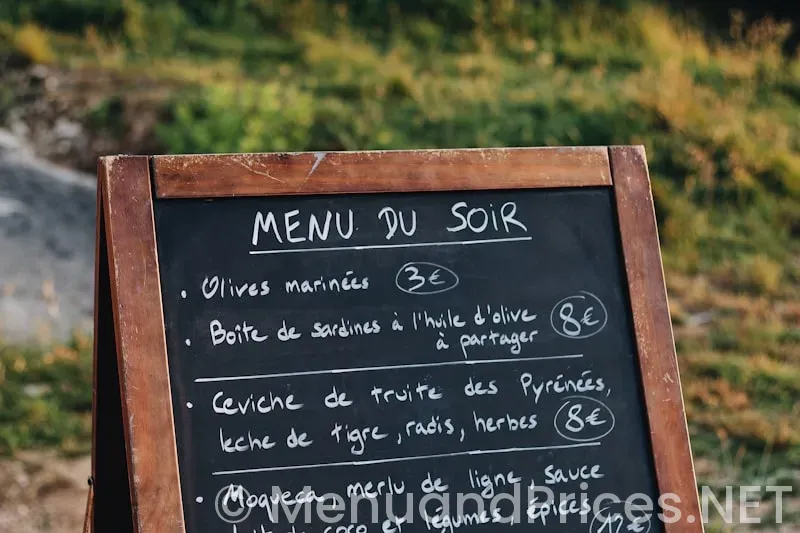 MENU DU SOIR
• Olives marinées 3€
• Boîte de sardines à l'huile d'olive
à partager 8€
• Ceviche de truite des Pyrénées,
leche de tigre, radis, herbes 8€
• Moqueca, merlu de ligne, sauce
coco et légumes, épices
© MenuandPrices.NET